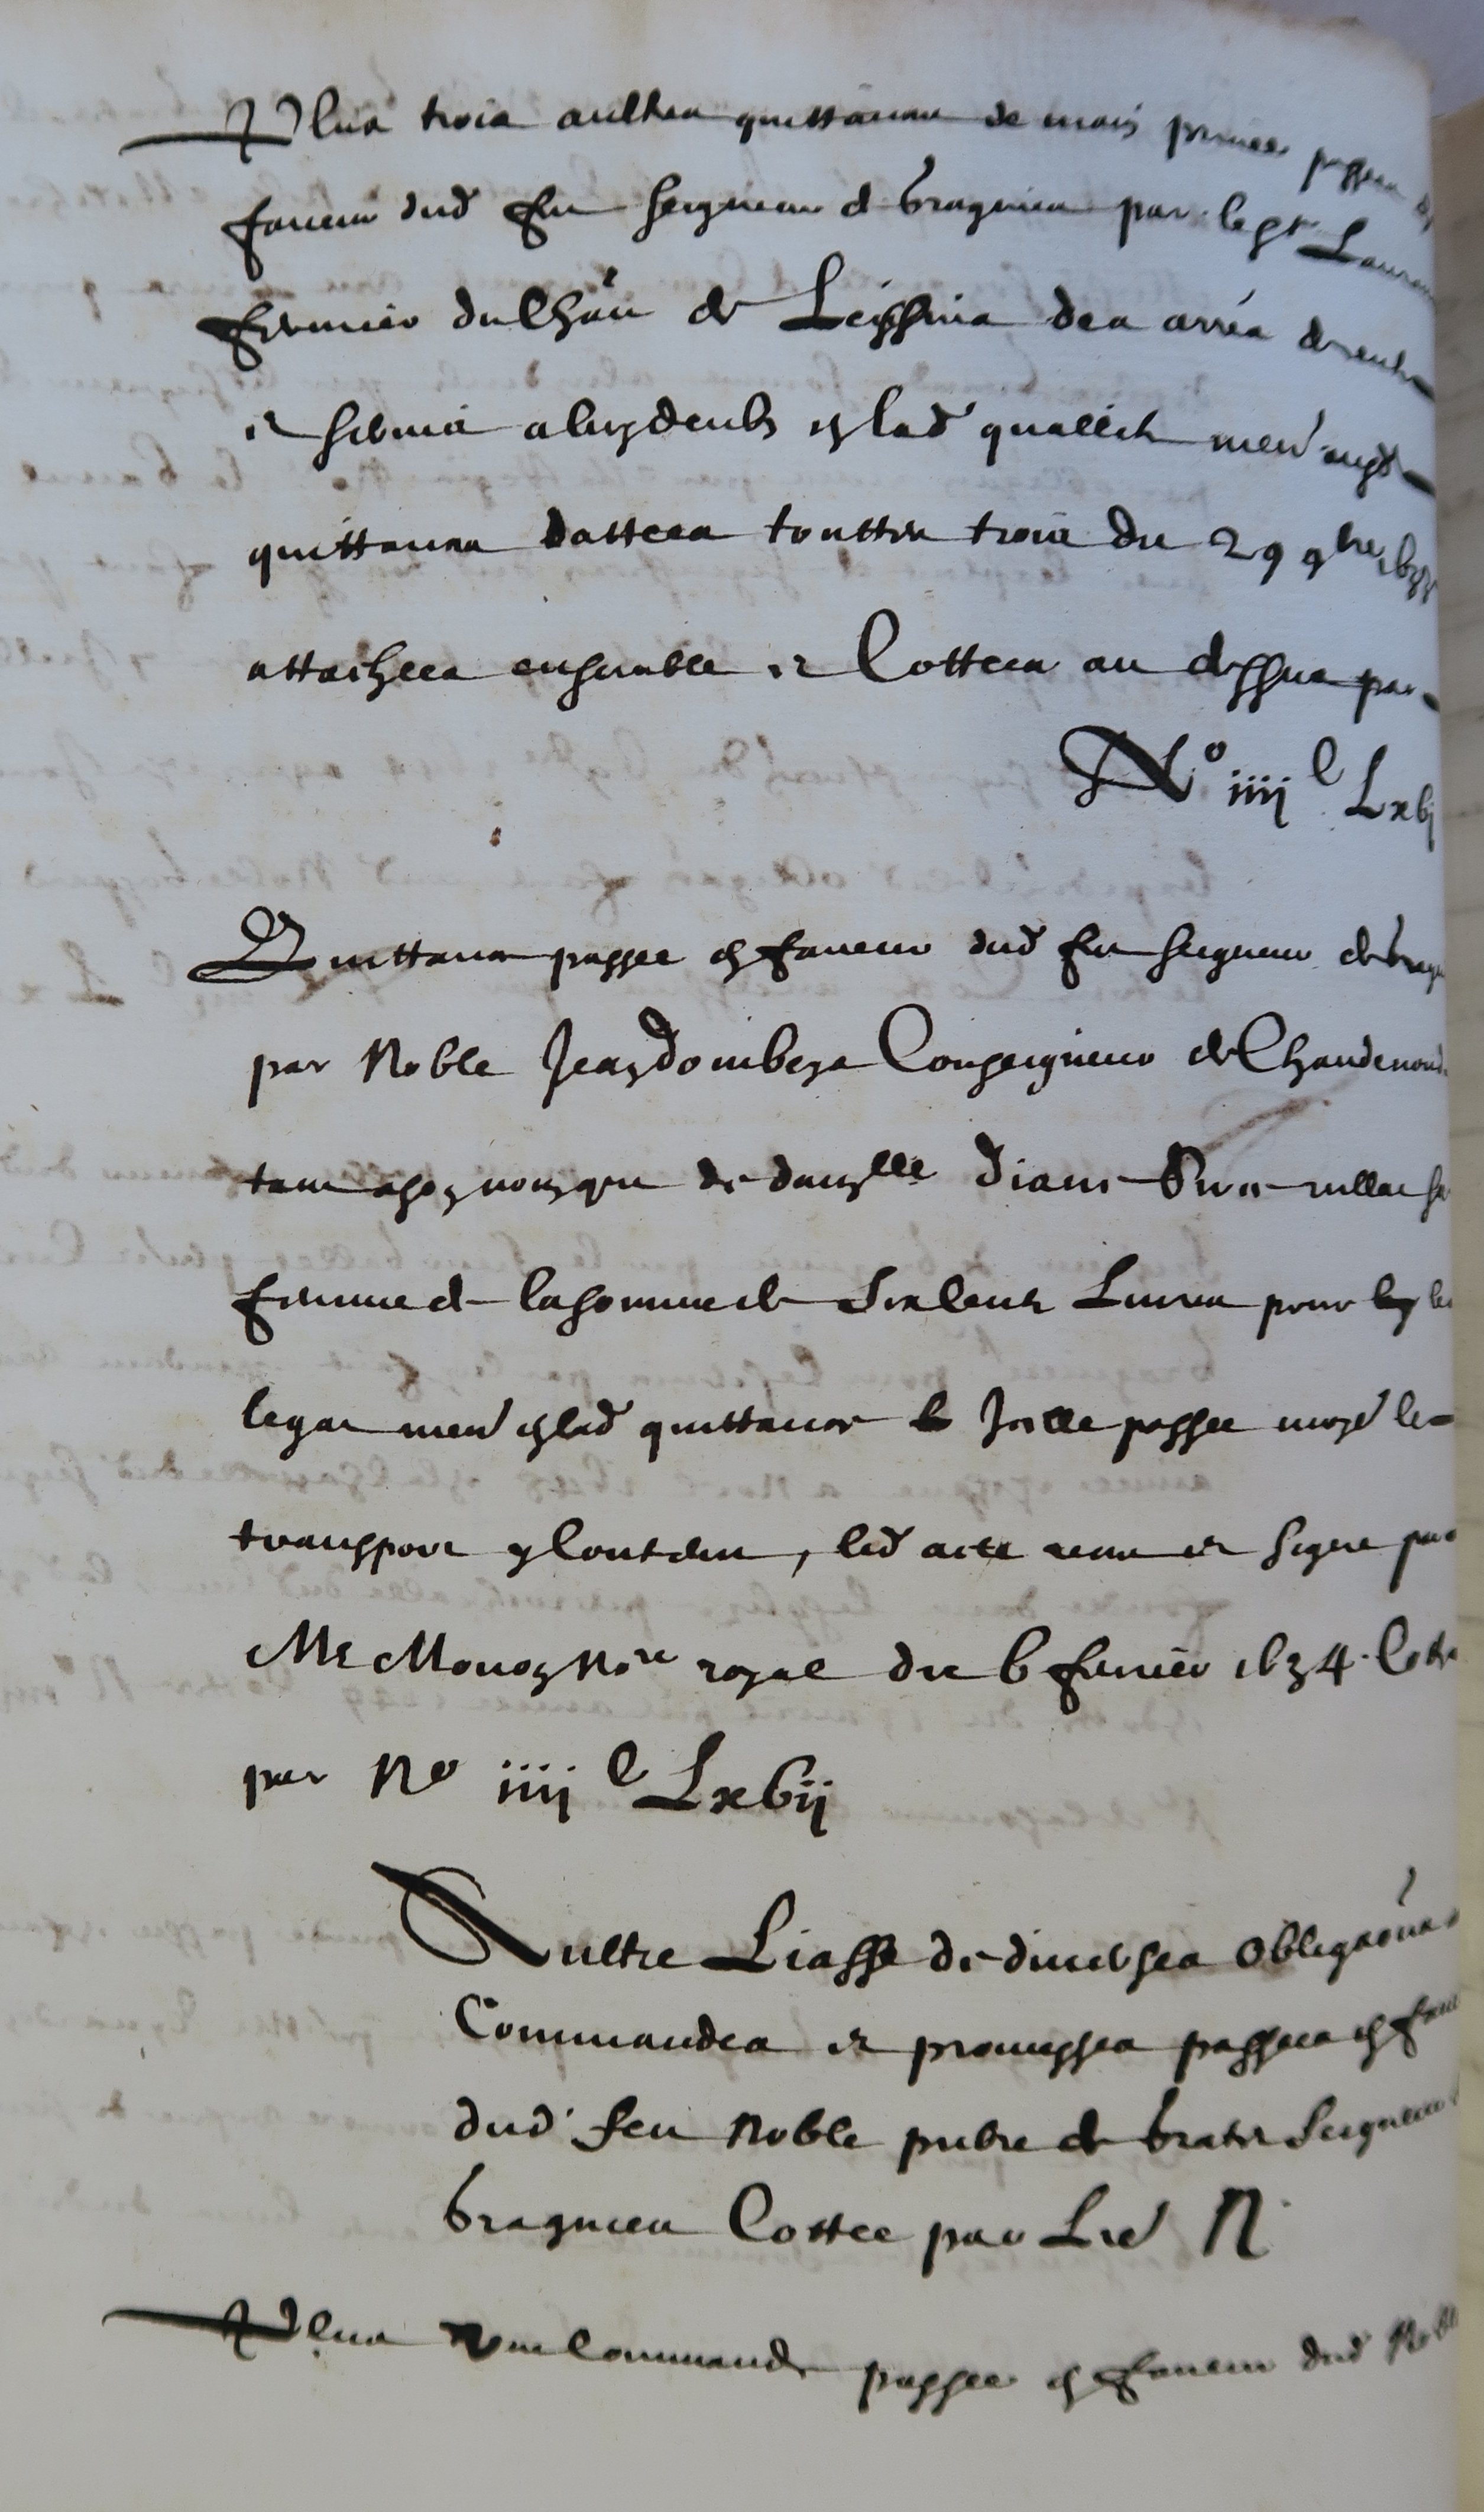 Plus trois aultres quittances de main privee passees en
faveur dud feu seigneur de bragnieu par le sr Laurens
fermier du Chau de Leissins des arrés de rente
et servis a luy deubz en lad quallité men aux d
quittances dattees touttes trois du 29 9bre
attachees ensemble et Cottees au dessus par
No iiij C Lxbj
Quittance passee en faveur dud feu seigneur de brag
par Noble Jean Conseigneur de
tant a son nom que de dauzlle Diane sa
femme de la somme de Livres pour les
legat men en lad quittance Icelle passee moyen le
transport y Contenu, led acte receu et signe par
Me Monon Nore royal du 6 febvrier 1634 Cotte
par No iiij C Lxbij
Aultre Liasse de diverses Obligaôns
Commandes et promesses passees en fav
dud feu Noble pierre de Seigneur
bragnieu Cottee par Lre N
Plus une Commande passee en faveur dud Noble